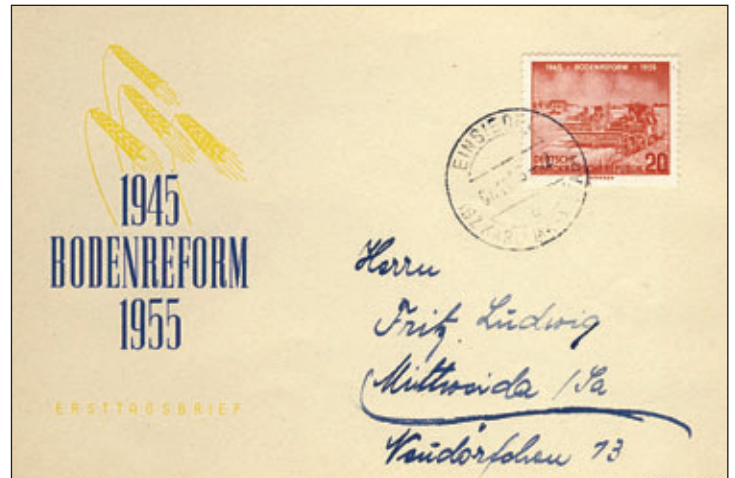 1945
BODENREFORM
1955
ERSTTAGSBRIEF
1945 - BODENREFORM - 1955
DEUTSCHE
DEMOKRATISCHE REPUBLIK
20
Herrn
Fritz Ludwig
Mittweida /Sa
Neudörfchen 13